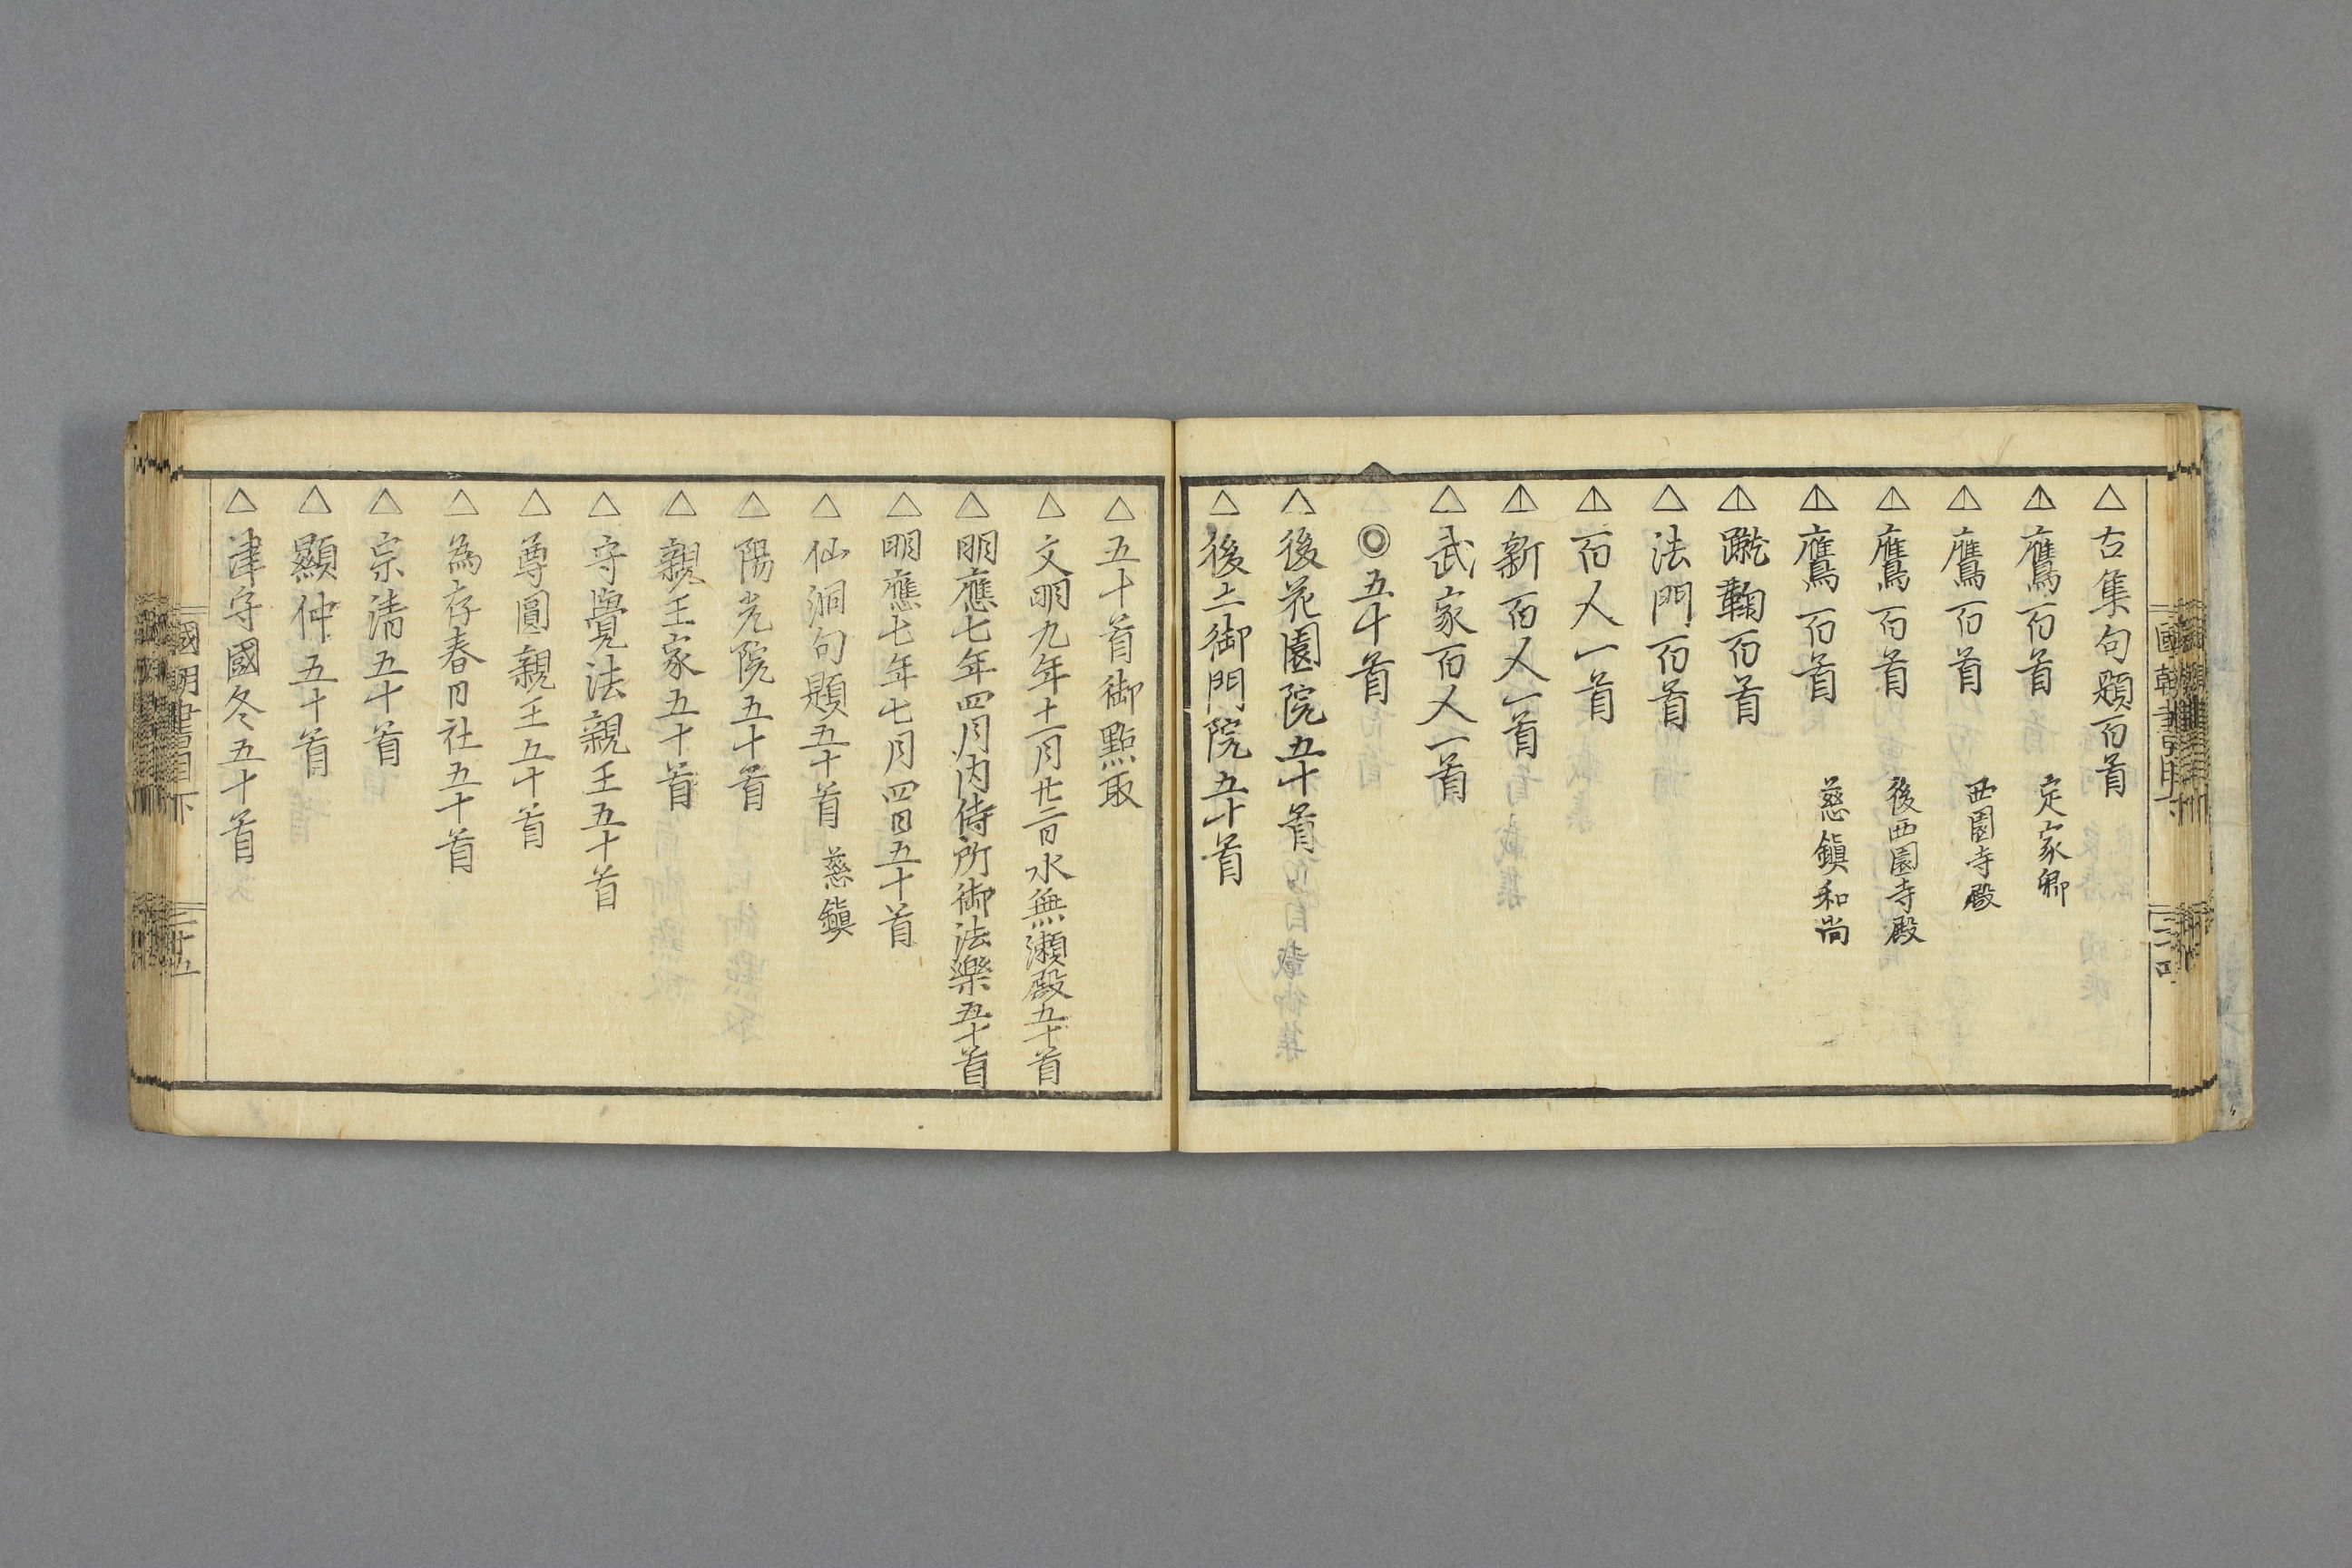 △古集句題百首
△鷹百首 定家卿
△鷹百首 西園寺殿
△鷹百首 後西園寺殿
△鷹百首 慈鎮和尚
△蹴鞠百首
△法門百首
△百人一首
△新百人一首
△武家百人一首
◎五十首
△後花園院五十首
△後土御門院五十首
△五十首御點取
△文明九年十一月廿二日水無瀬殿五十首
△明應七年四月内侍所御法樂五十首
△明應七年七月四日五十首
△仙洞句題五十首 慈鎮
△陽光院五十首
△親王家五十首
△守覺法親王五十首
△尊圓親王五十首
△為存春日社五十首
△宗清五十首
△顯仲五十首
△津守國冬五十首
國朝書目下
三十五